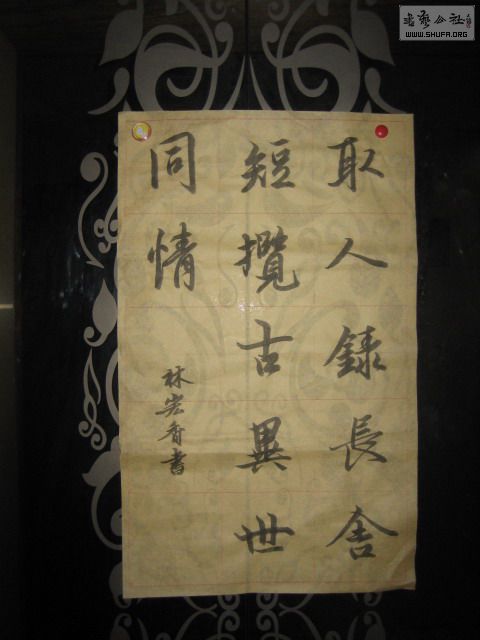 取人錄長舍
短攬古異世
同情
林宏香書
書艺公社
WWW.SHUFA.ORG